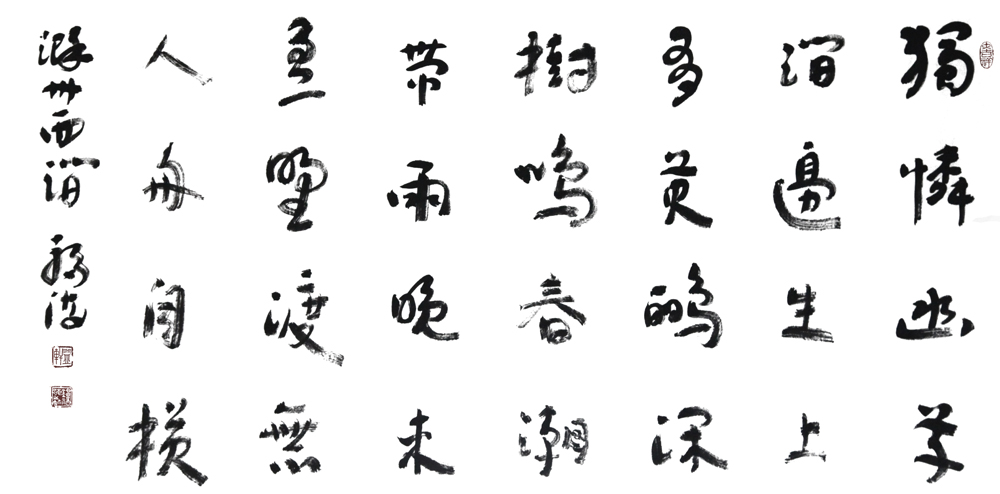 獨憐幽草
澗邊生上
有黄鸝深
樹鳴春潮
帶雨晚來
急野渡無
人舟自橫
滁州西澗